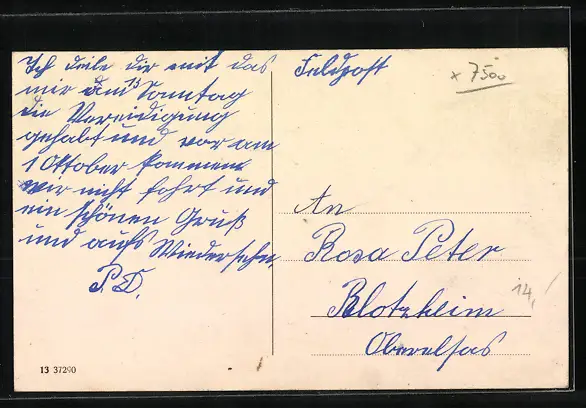 Ich teile dir mit das
mir am 13 Sonntag
die Vereidigung
gehabt und vor am
1 Oktober kommen
wir nicht fohrt und
ein schönen Gruß
und aufs Wiedersehn.
P.D.
13 37290
Feldpost
x 7500
An
Rosa Peter
Blotzheim
14,
Oberelsas